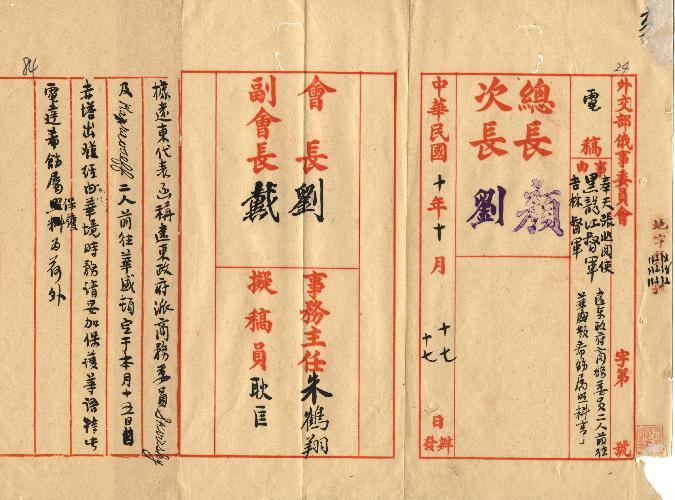 外交部俄事委員會
字第 號
電稿
事由
奉天張巡閱使
黑龍江督軍
吉林督軍
遠東政府商務委員二人前往
華盛頓希飭屬照料事
總長 顏
次長 劉
中華民國十年十月
十七 日辦
十七 發
會長 劉
副會長 戴
事務主任 朱鶴翔
擬稿員 耿匡
據遠東代表函稱遠東政府派商務委員
及 二人前往華盛頓定于本月十五日由
赤塔出發經由華境時務請妥加保護等語特此
電達希飭屬保護照料為荷外
24
84